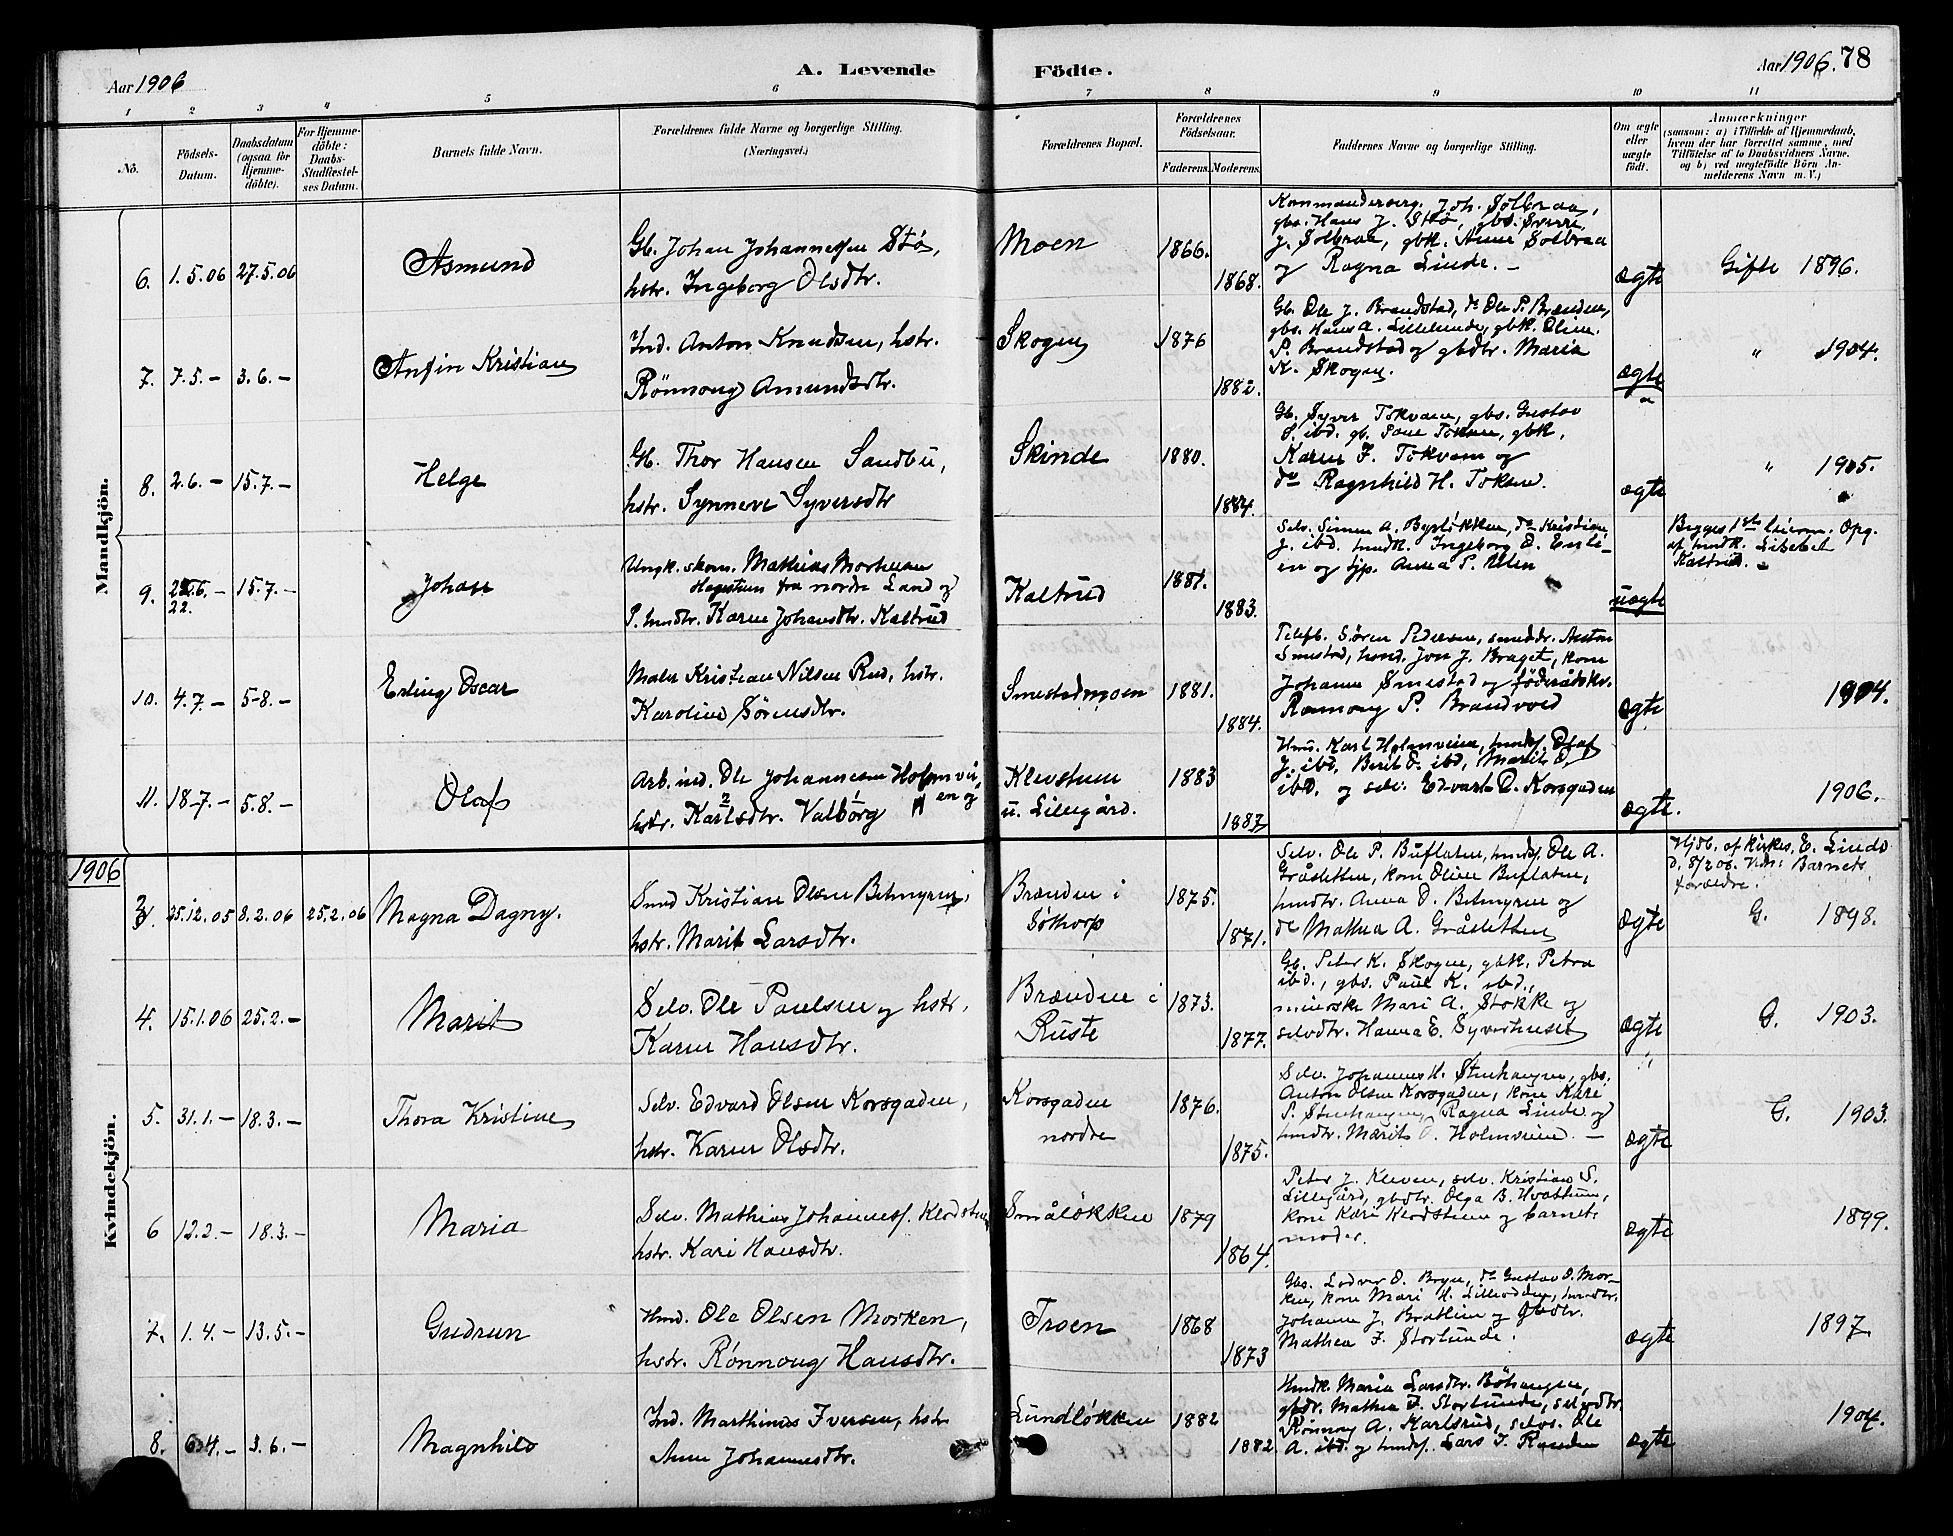 Aar 1906
A. Levende Födte.
Aar 1906. 78
1 2 3 4 5 6 7 8 9 10 11
Nö.
Födsels-
Datum.
Daabsdatum
(ogsaa for
Hjemme-
döbte).
For Hjemme-
döbte:
Daabs-
Stadfæstel-
ses Datum.
Barnets fulde Navn.
Forældrenes fulde Navne og borgerlige Stilling.
(Næringsvei.)
Forældrenes Bopæl.
Forældrenes
Födselsaar.
Faderens. Moderens.
Faddernes Navne og borgerlige Stilling.
Om ægte
eller
uægte
födt.
Anmærkninger
(saasom: a) i Tilfælde af Hjemmedaab,
hvem der har forrettet samme, med
Tilföielse af to Daabsvidners Navne,
og b) ved uægtefödte Börn An-
melderens Navn m. V.)
Mandkjön.
6. 1.5.06 27.5.06 Asmund
Gb. Johan Johannessen Stø,
hstr. Ingeborg Olsdtr.
Moen 1866. 1868.
Kommandersrg. Joh. Solbraa,
gbs. Hans J. Stø, gbs. Sverre
J. Solbraa, gbk. Anne Solbraa
og Ragna Linde. -
ægte Gifte 1896.
7. 7.5.- 3.6.- Anfin Kristian
Ind. Anton Knudsen, hstr.
Rønnoug Amundsdtr.
Skogen 1876 1882.
Gb. Ole J. Brandstad, do Ole P. Brænden,
gbs. Hans A. Lillelunde, gbk. Oline
P. Brandstad og gbdtr. Maria
K. Skogen.
ægte " 1904.
8. 2.6.- 15.7.- Helge
Gb. Thor Hansen Sandbu,
hstr. Synneve Syversdtr
Skinde 1880. 1884.
Gb. Syver Tokvam, gbs. Gustav
S. ibd. gb. Tokvam, gbk.
Karen F. Tokvam og
do Ragnhild H.
ægte " 1905.
9. 22.6.- 15.7.- Johan
Ungk. skom. Mathias Mortensen
fra nordre Land og
P. hmdtr. Karen Johansdtr. Kaltrud
Kaltrud 1881. 1883.
Selv. Simen A. Byrløkken, do Kristian
J. ibd. hmdk. Ingeborg O.
en og pp. Anna P.
uægte
Begges 1ste leierm. Opg.
af hmdk. Lisebet
Kaltrud. -
10. 4.7.- 5-8.- Erling Oscar
Maler Kristian Nilsen Rud, hstr.
Karoline Sørensdtr.
Smestadmoen 1881. 1884.
Telefb. Sören Pedersen, smeddr. Anton
Smestad, hmd. Jon J. Braget, kone
Johanne Smestad og föderådskv.
Rønnoug P. Brandvold
ægte. 1904.
11. 18-7.- 5.8.- Olaf
Arb. ind. Ole Johannesen Holmvei-
en og
hstr. Karlsdtr. Valborg
Klevstuen
u. Lillegård. 1883 1887
Hmd. Karl Holmveien, hmds. Olaf
J. ibd, Berit O. ibd, Marit O.
ibd. og selv. Edvart O. Korsgaden
ægte. 1906.
1906
Kvindekjön.
3. 25.12.05 8.2.06 25.2.06 Magna Dagny.
Smed Kristian Olsen Betmyren,
hstr. Marit Larsdtr.
Brænden i
Sødorp 1875. 1871.
Selv. Ole P. Buflaten, hmds. Ole A.
Gråsletten, kone Oline Buflaten,
hmdtr. Anna O. Betmyren og
do Mathea A. Gråsletten
ægte
Hjdb. af kirkes. E. Linde
d. 8/2 06. Vidn: Barnets
forældre.
G. 1898.
4. 15.1.06 25.2.- Marit
Selv. Ole Paulsen og hstr.
Karen Hansdtr.
Brænden i
Ruste 1873. 1877.
Gb. Peter K. Skogen, gbk. Petra
ibd., gbs. Paul K. ibd.,
Mari A. Stokke og
selvdtr. Hanna E. Syverhuset
ægte G. 1903.
5. 31.1.- 18.3.- Thora Kristine
Selv. Edvard Olsen Korsgaden,
hstr. Karen Olsdtr.
Korsgaden
nordre 1876. 1875.
Selv. Johannes H. Stenhaugen, gbs.
Anton Olsen Korsgaden, kone Kari
P. Stenhaugen, Ragna Linde og
hmdtr. Marit O. Holmveien. -
ægte G. 1903.
6 12.2.- 18.3.- Maria
Selv. Mathias Johannes. Klodstuen,
hstr. Kari Hansdtr.
Småløkken 1879 1864.
Peter J. Kleven, selv. Kristian S.
Lillegård, gbdtr. Olga B. Hvattum,
kone Kari Klodstuen og barnets
moder.
ægte 1899.
7. 1.4.- 13.5.- Gudrun
Hmd. Ole Olsen Morken,
hstr. Rønnoug Hansdtr.
Troen 1868 1873
Gbs. Lodver O. Bryn, do Gustav O. Mor-
ken, kone Mari H. Lillodden, hmdtr.
Johanne J. Bratlien og Gbdtr.
Mathea F. Storlunde.
ægte 1897.
8. 6.4.- 3.6.- Magnhild
Ind. Marthinus Iversen, hstr
Anne Johannesdtr.
Lundløkken 1882 1882.
Hmdk. Maria Larsdtr. Böhaugen,
gbdtr. Mathea F. Storlunde, selvdtr
Rønnoug A. Karlsrud, selvs. Ole
A. ibd. og hmds. Lars I. Randen
ægte 1904.